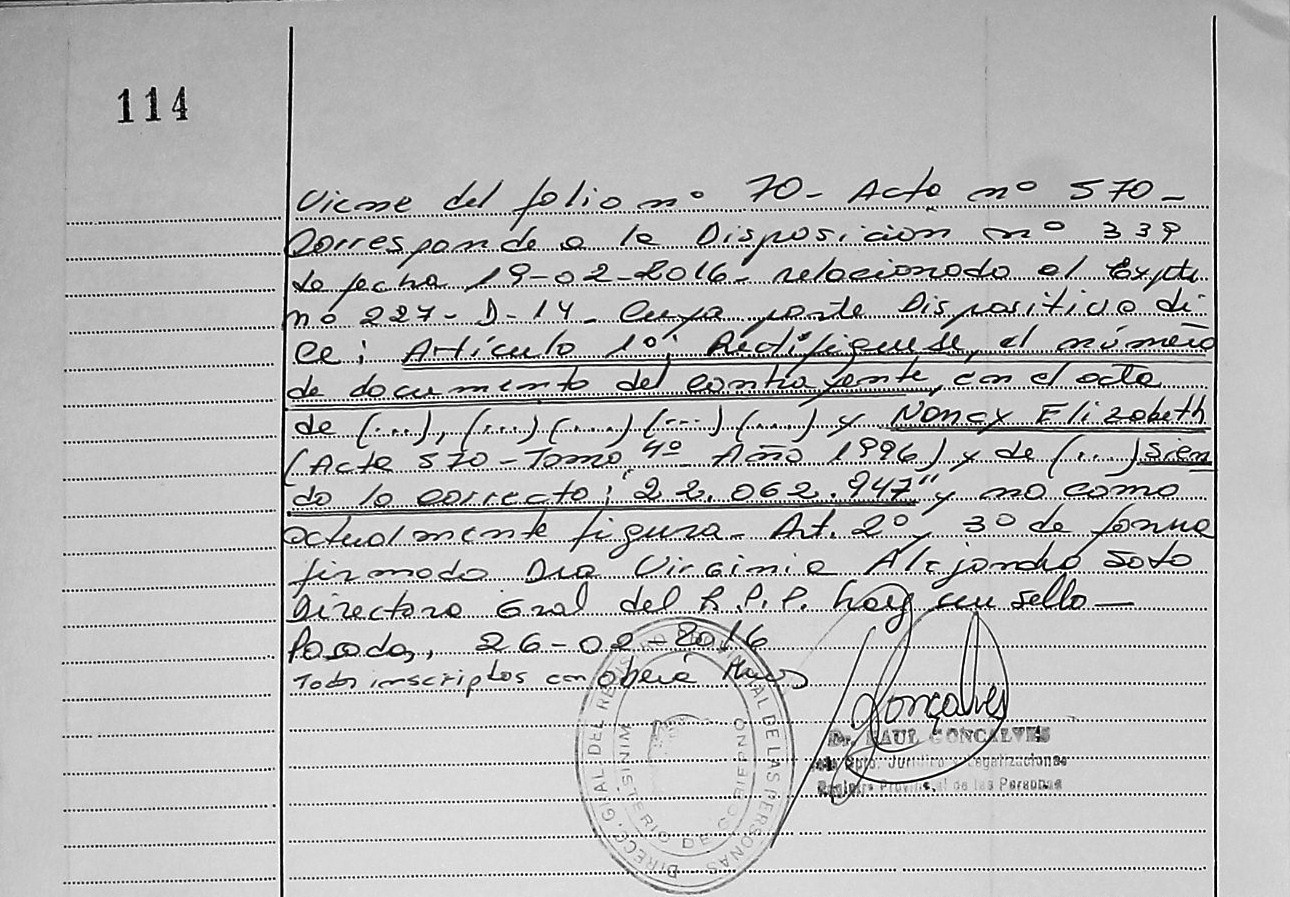 114
Viene del folio nº 70 - Acta nº 570 -
Corresponde a la Disposición nº 339
de fecha 19-02-2016 - relacionado al Expte
nº 227 - D - 14 - Cuya parte Dispositiva di-
ce: Artículo 1º: Rectifíquese, el número
de documento del contrayente, en el acta
de (...), (...) (...) (...) (...) y Nancy Elizabeth
(Acta 570 - Tomo 4º - Año 1996) y de (...) Sien
do lo correcto: "22.062.947" y no como
actualmente figura - Art. 2º y 3º de forma
firmado Dra Virginia Alejandra Soto
Directora Gral del R.P.P. hay un sello -
Posadas, 26-02-2016
Todos inscriptos en Oberá Mnes
Gonçalves
Dr. RAUL GONCALVES
Dpto. Jurídico y Legalizaciones
Registro Provincial de las Personas
DIRECC. GRAL DEL REGISTRO PROVINCIAL DE LAS PERSONAS
MINISTERIO DE GOBIERNO